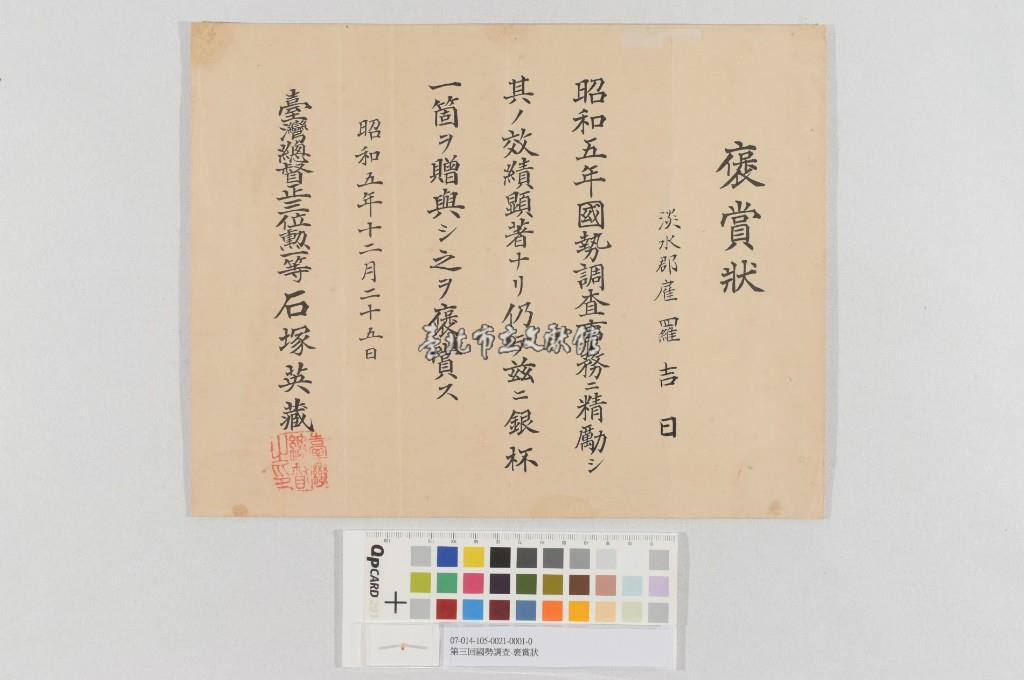 褒賞狀
淡水郡雇 羅吉日
昭和五年國勢調査事務ニ精勵シ
其ノ效績顯著ナリ仍テ茲ニ銀杯
一箇ヲ贈與シ之ヲ褒賞ス
昭和五年十二月二十五日
臺灣總督正三位勲一等 石塚英藏
臺灣總督之印
臺北市立文獻館
QPCARD 201
07-014-105-0021-0001-0
第三回國勢調查-褒賞狀